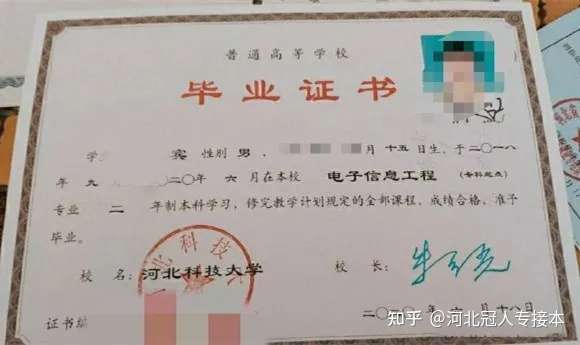 普通高等学校
毕业证书
学 宾 性别 男, 月 十五 日生, 于二〇一八
年 九 二〇 年 六 月在本校 电子信息工程 (专科起点)
专业 二 年制本科学习, 修完教学计划规定的全部课程, 成绩合格, 准予
毕业。
校 名: 河北科技大学 校 长:
二〇二〇年 六 月 十八 日
证书编
知乎 @河北冠人专接本